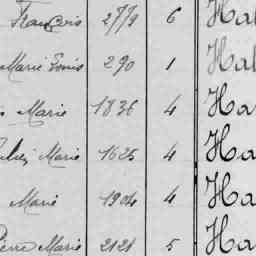 François 2779 6 Hal
Marie Louis 290 1 Hal
Marie 1836 4 Ha
Marie 1625 4 Ha
Marie 1904 4 Ha
Pierre Marie 2128 5 Ha